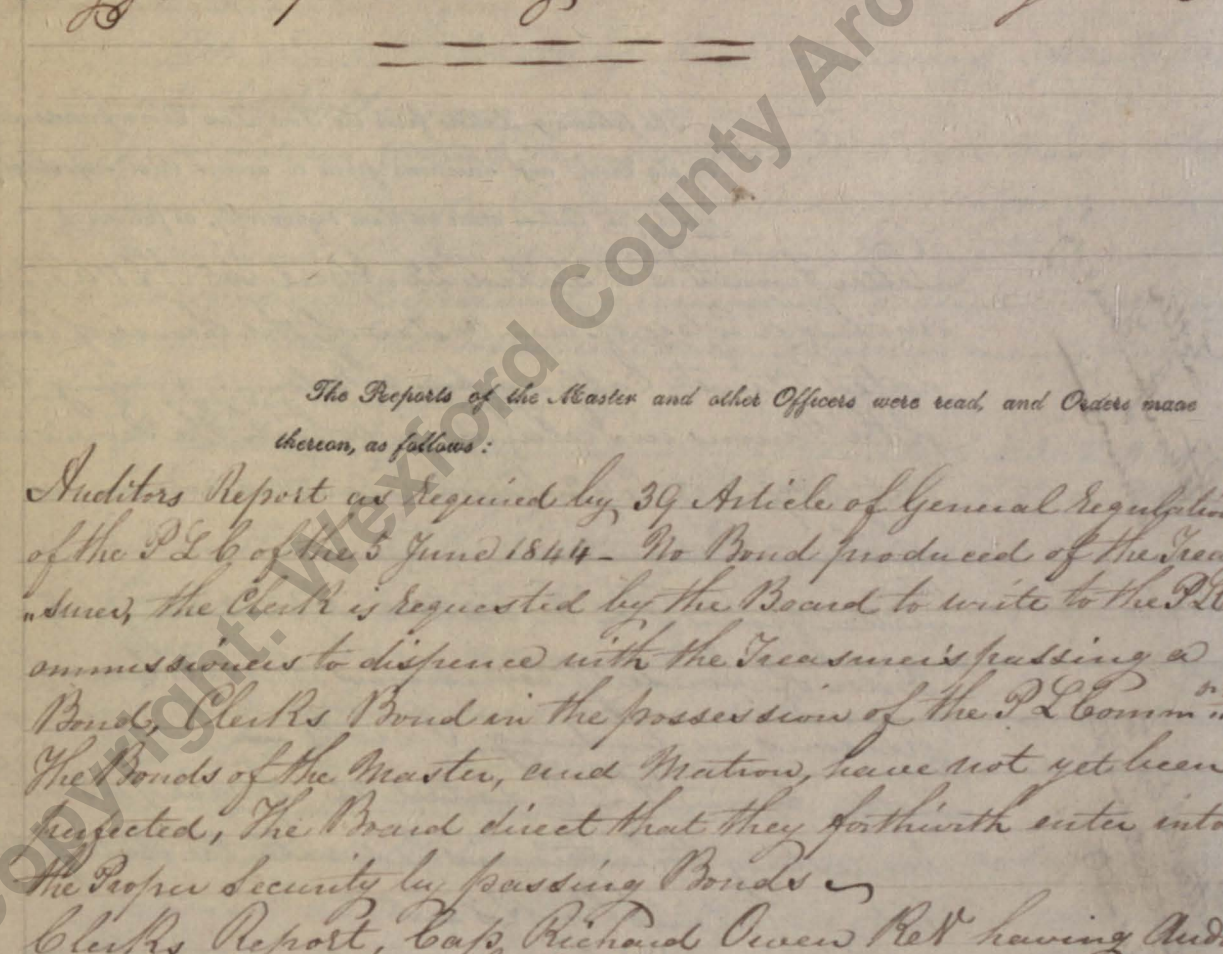 The Reports of the Master and other Officers were read, and Orders made
thereon, as follows:
Auditors Report as required by 39 Article of General Regulation
of the P L C of the 5 June 1844 - No Bond produced of the Trea
"surer, the Clerk is requested by the Board to write to the P L C
ommissioners to dispence with the Treasurer's passing a
Bond, Clerks Bond in the possession of the P L Comm
The Bonds of the Master, and Matron, have not yet been
perfected, The Board direct that they forthwith enter into
the Proper Security by passing Bonds
Clerks Report, Cap Richard Owen having Aud
Copyright: Wexford County Arc